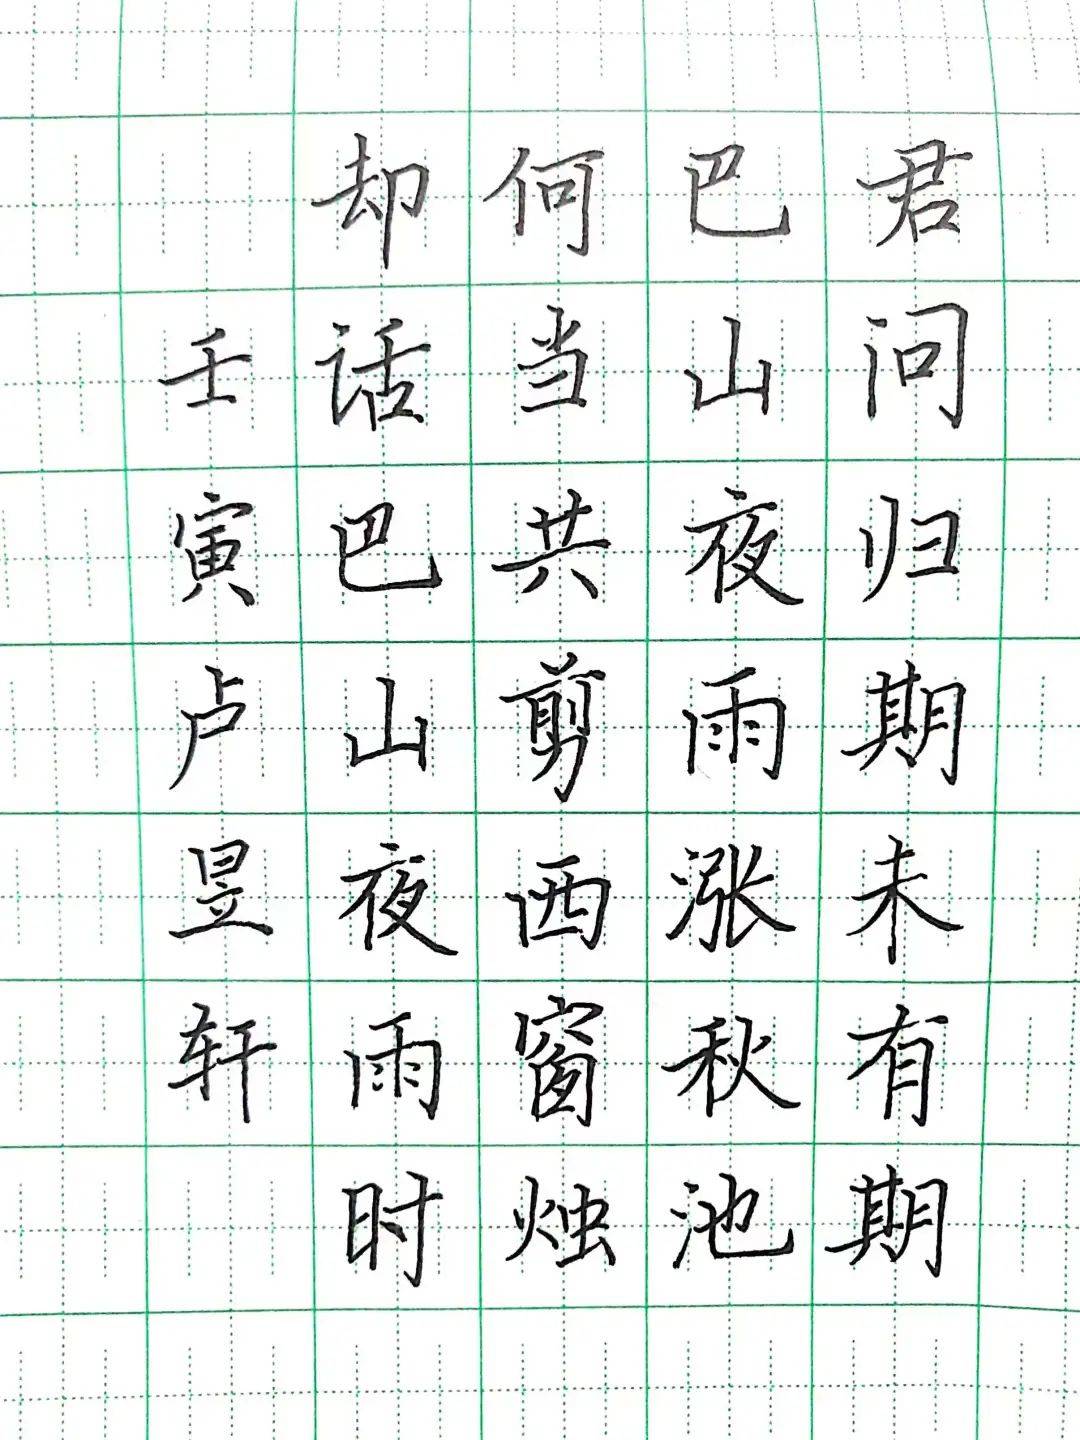 君问归期未有期
巴山夜雨涨秋池
何当共剪西窗烛
却话巴山夜雨时
壬寅卢昱轩